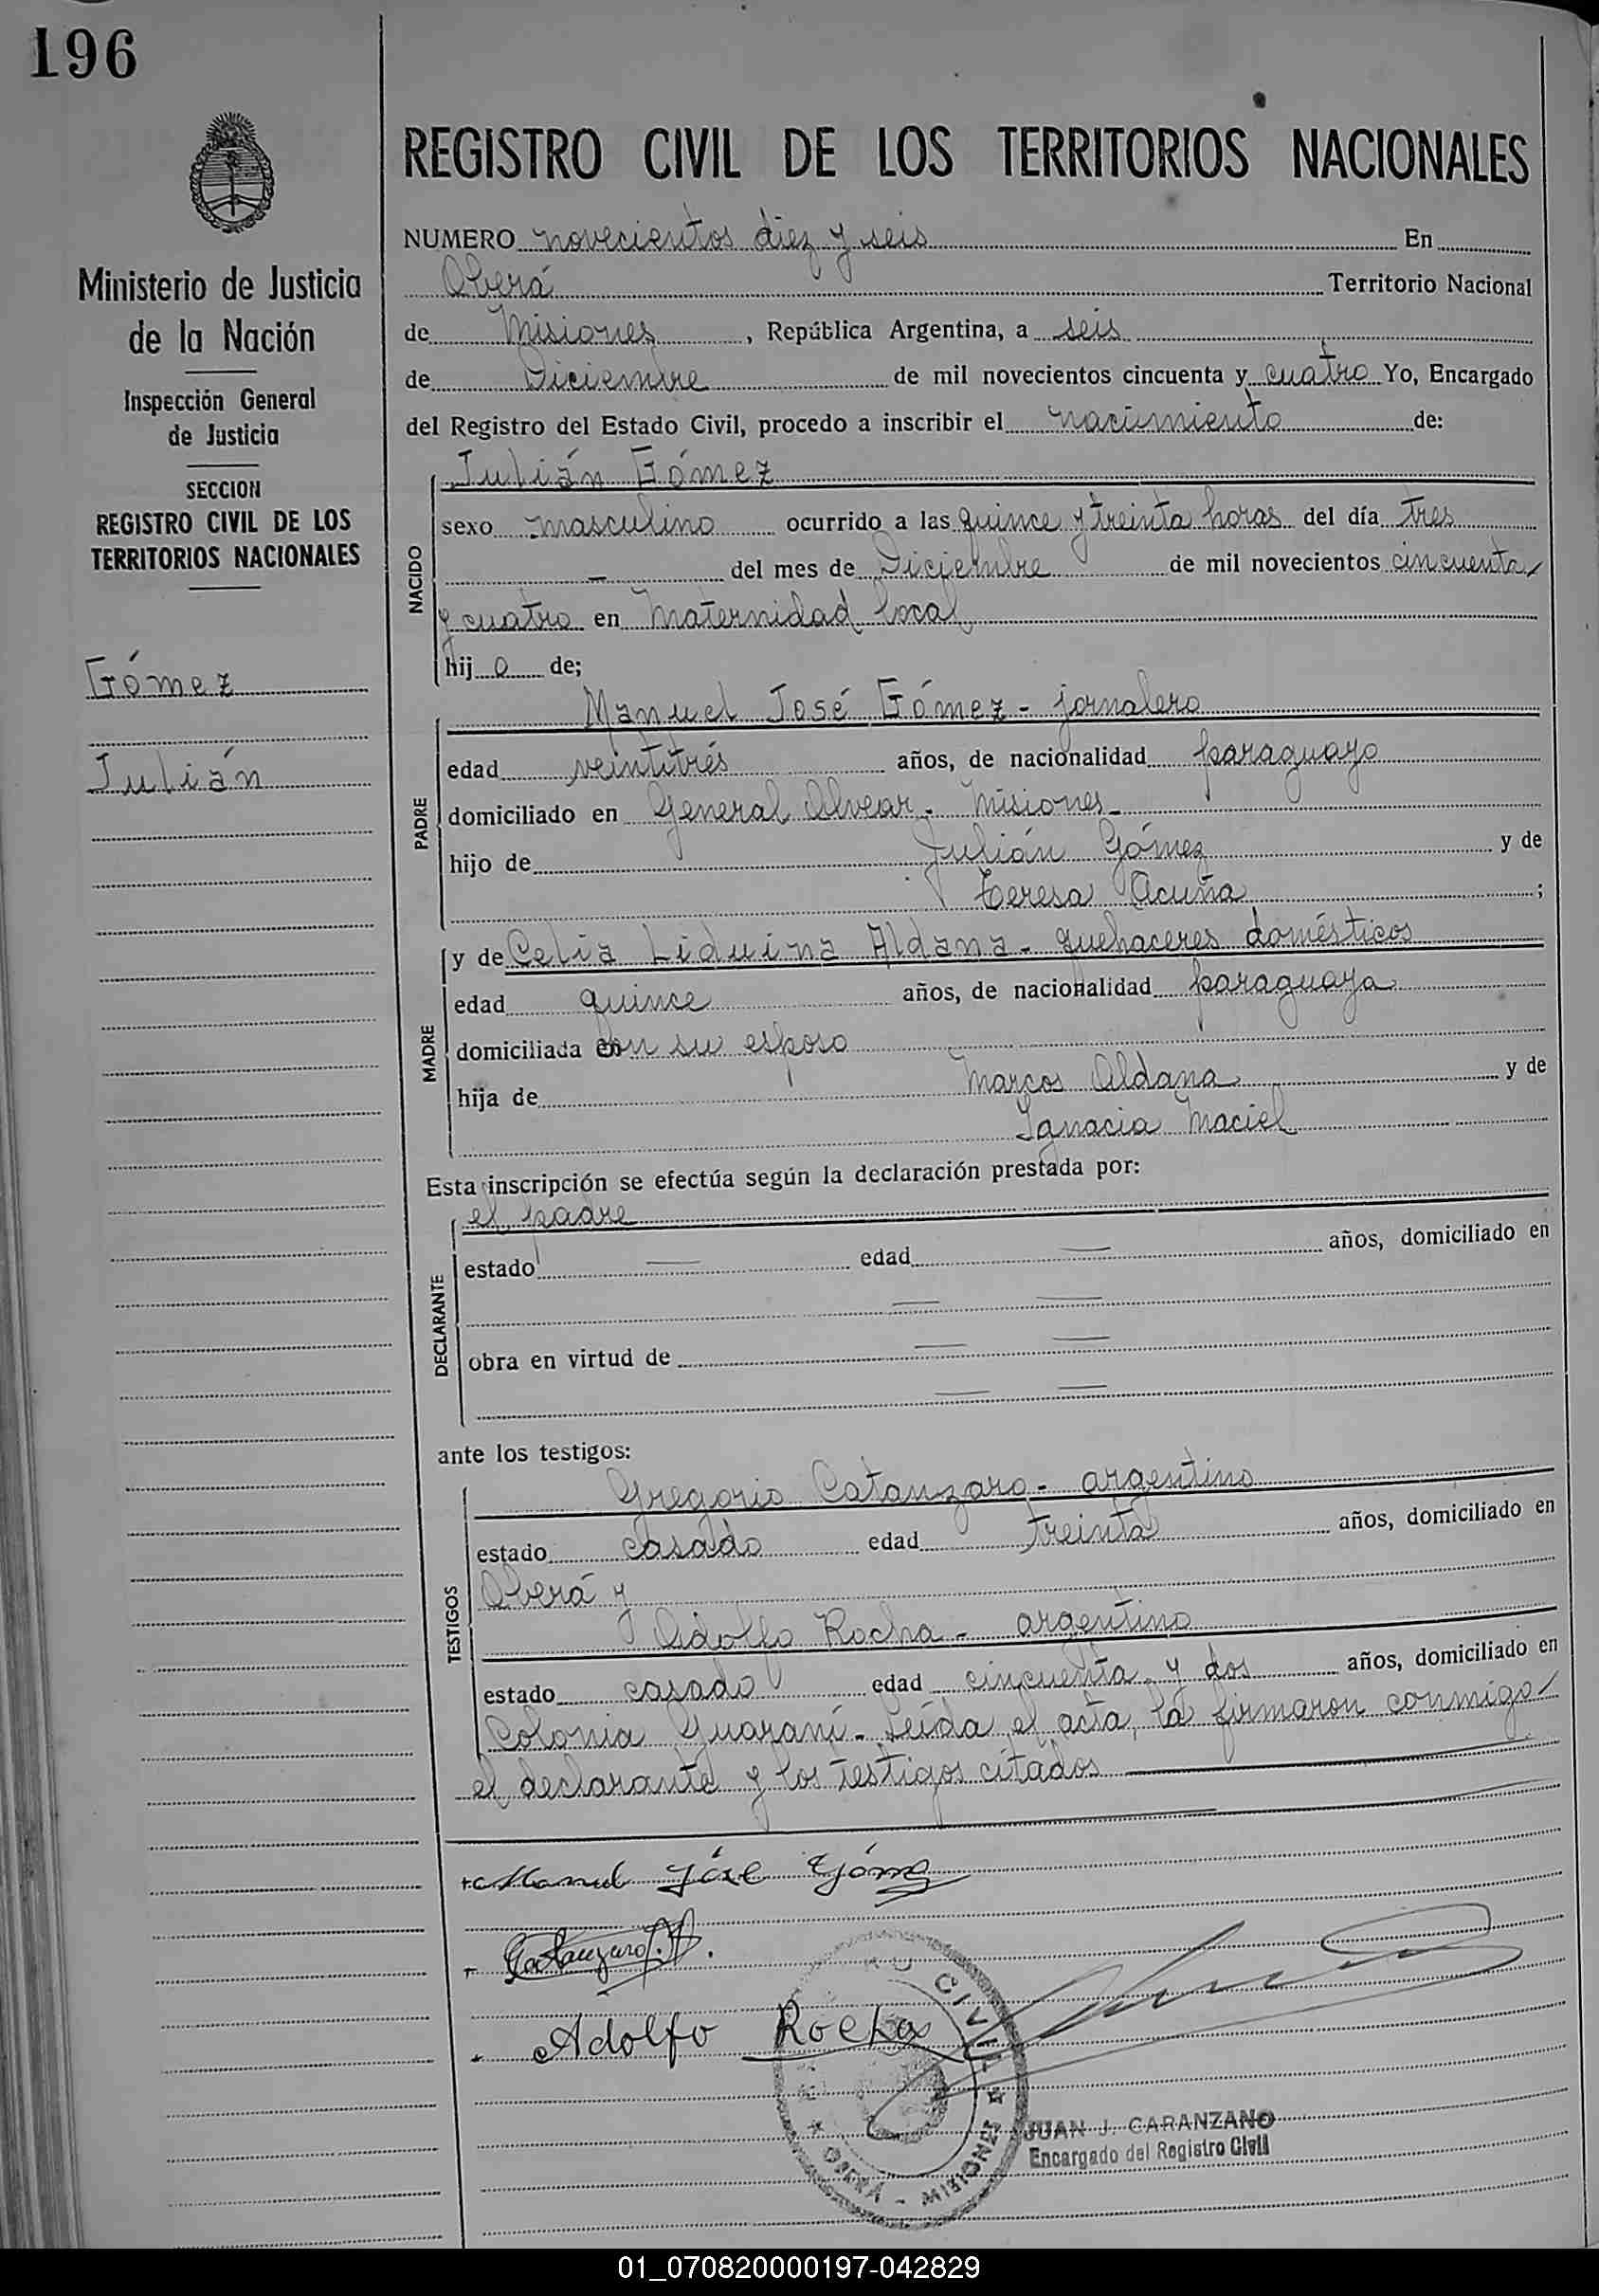 196
Ministerio de Justicia
de la Nación
Inspección General
de Justicia
SECCION
REGISTRO CIVIL DE LOS
TERRITORIOS NACIONALES
Gómez
Julián
REGISTRO CIVIL DE LOS TERRITORIOS NACIONALES
NUMERO novecientos diez y seis En
Oberá Territorio Nacional
de Misiones, República Argentina, a seis
de Diciembre de mil novecientos cincuenta y cuatro Yo, Encargado
del Registro del Estado Civil, procedo a inscribir el nacimiento de:
NACIDO
Julián Gómez
sexo masculino ocurrido a las quince y treinta horas del día tres
— del mes de Diciembre de mil novecientos cincuenta
y cuatro en Maternidad local
hij o de;
PADRE
Manuel José Gómez - jornalero
edad veintitrés años, de nacionalidad paraguayo
domiciliado en General Alvear - Misiones -
hijo de Julián Gómez y de
Teresa Acuña ;
MADRE
y de Celia Liduina Aldana - quehaceres domésticos
edad quince años, de nacionalidad paraguaya
domiciliada con su esposo
hija de Marcos Aldana y de
Ignacia Maciel
Esta inscripción se efectúa según la declaración prestada por:
DECLARANTE
el padre
estado — edad — años, domiciliado en
— —
obra en virtud de — —
— —
ante los testigos:
TESTIGOS
Gregorio Catanzaro - argentino
estado casado edad treinta años, domiciliado en
Oberá y
Adolfo Rocha - argentino
estado casado edad cincuenta y dos años, domiciliado en
Colonia Guaraní - Leída el acta, la firmaron conmigo
el declarante y los testigos citados
Manuel José Gómez
Catanzaro
Adolfo Rocha
CIVIL
OBERA - MISIONES
JUAN J. CARANZANO
Encargado del Registro Civil
01_070820000197-042829